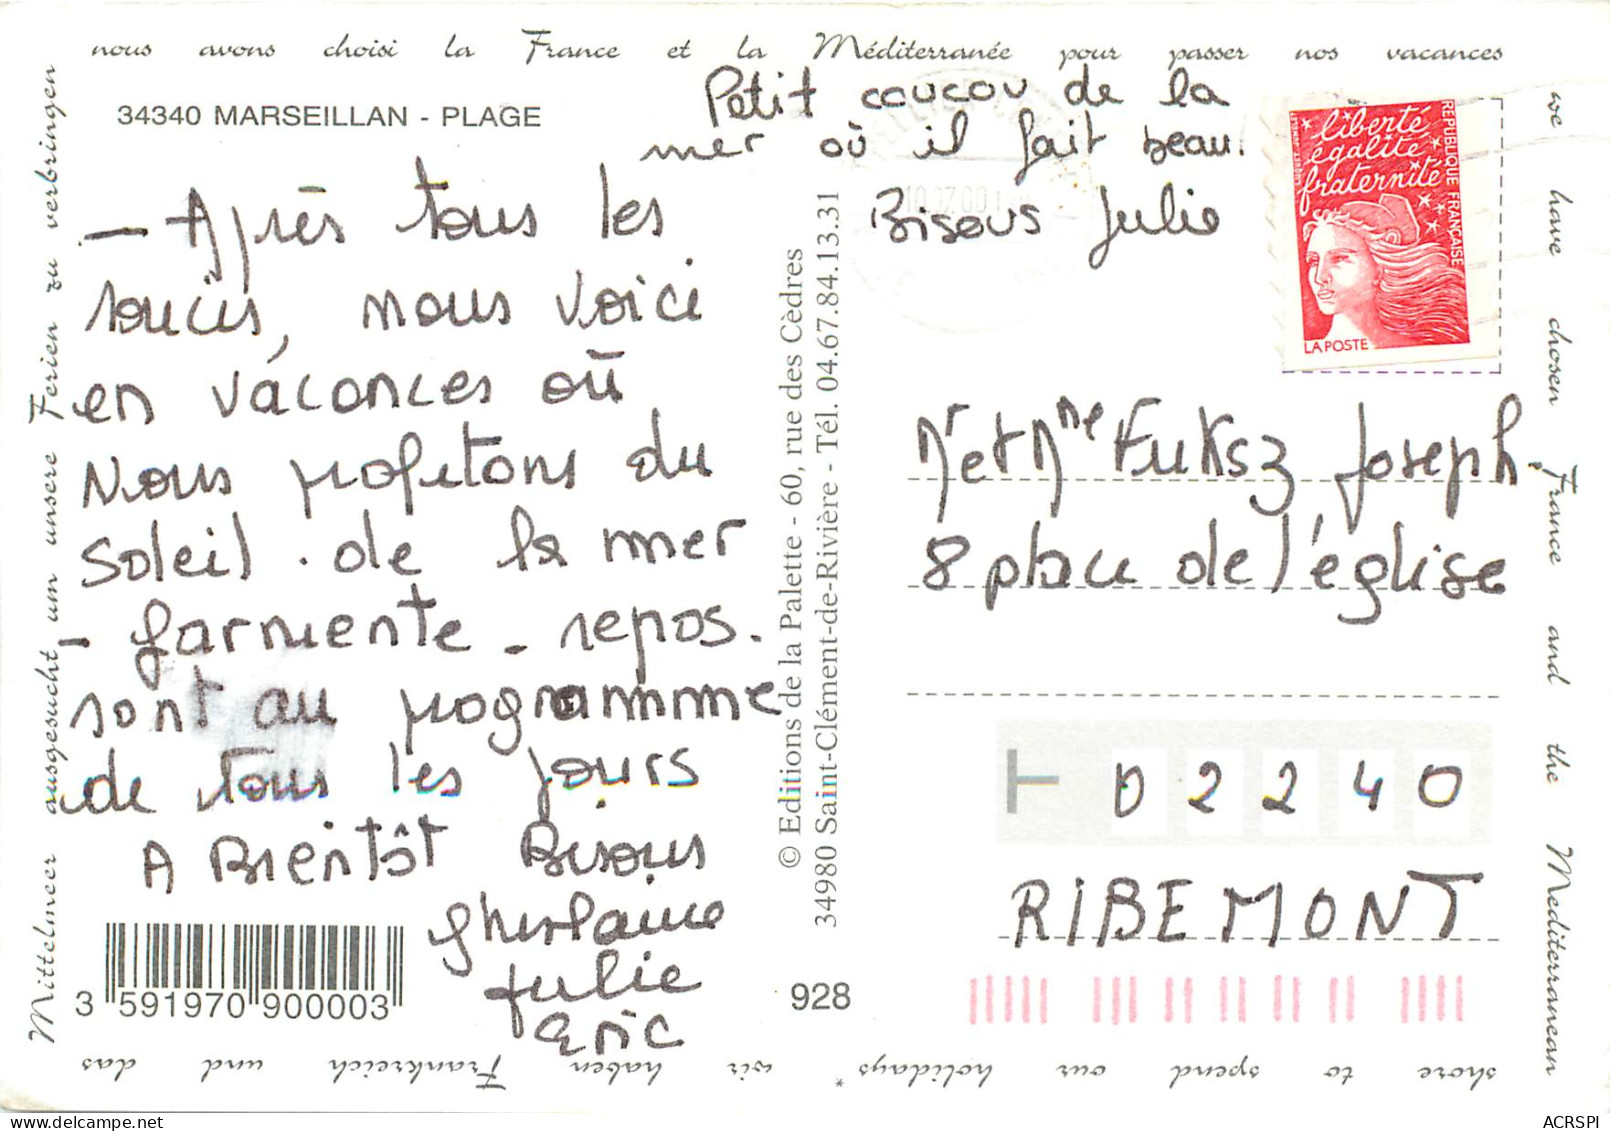 nous avons choisi la France et la Méditerranée pour passer nos vacances
34340 MARSEILLAN - PLAGE
Petit coucou de la
mer où il fait beau.
Bisous Julie
- Après tous les
soucis, nous voici
en vacances où
Nous profitons du
soleil . de la mer
- farniente - repos.
sont au programme
de tous les jours
A Bientôt Bisous
Ghislaine
Julie
Eric
3 591970 900003
928
© Editions de la Palette - 60, rue des Cèdres
34980 Saint-Clément-de-Rivière - Tél. 04.67.84.13.31
liberté
égalité
fraternité
REPUBLIQUE FRANÇAISE
LA POSTE
Mr et Mme Fuksz Joseph.
8 place de l'église
02240
RIBEMONT
we have chosen France and the Mediterranean
shore to spend our holidays *
wir haben Frankreich und das
Mittelmeer ausgesucht um unsere Ferien zu verbringen
ACRSPI